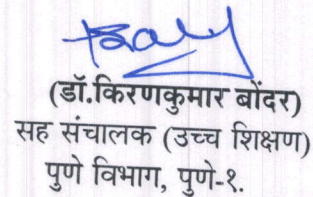 (डॉ.किरणकुमार बोंदर)
सह संचालक (उच्च शिक्षण)
पुणे विभाग, पुणे-१.